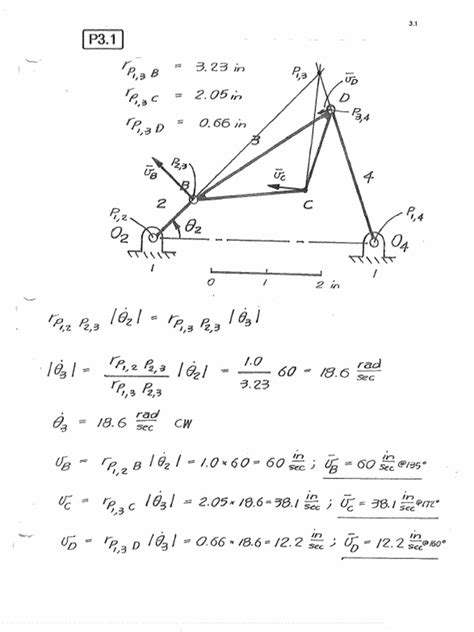 3.1
P3.1
r_{P_{1,3} B} = 3.23 in
r_{P_{1,3} C} = 2.05 in
r_{P_{1,3} D} = 0.66 in
P_{1,3}
v̄_D
D
P_{3,4}
3
P_{2,3}
v̄_B
B
v̄_C
C
4
2
P_{1,2}
θ_2
P_{1,4}
O_2
O_4
1
1
0 1 2 in
r_{P_{1,2} P_{2,3}} |θ̇_2| = r_{P_{1,3} P_{2,3}} |θ̇_3|
|θ̇_3| = r_{P_{1,2} P_{2,3}} / r_{P_{1,3} P_{2,3}} |θ̇_2| = 1.0 / 3.23 60 = 18.6 rad/sec
θ̇_3 = 18.6 rad/sec CW
v_B = r_{P_{1,2} B} |θ̇_2| = 1.0 × 60 = 60 in/sec ; v̄_B = 60 in/sec @135°
v_C = r_{P_{1,3} C} |θ̇_3| = 2.05 × 18.6 = 38.1 in/sec ; v̄_C = 38.1 in/sec @172°
v_D = r_{P_{1,3} D} |θ̇_3| = 0.66 × 18.6 = 12.2 in/sec ; v̄_D = 12.2 in/sec @160°